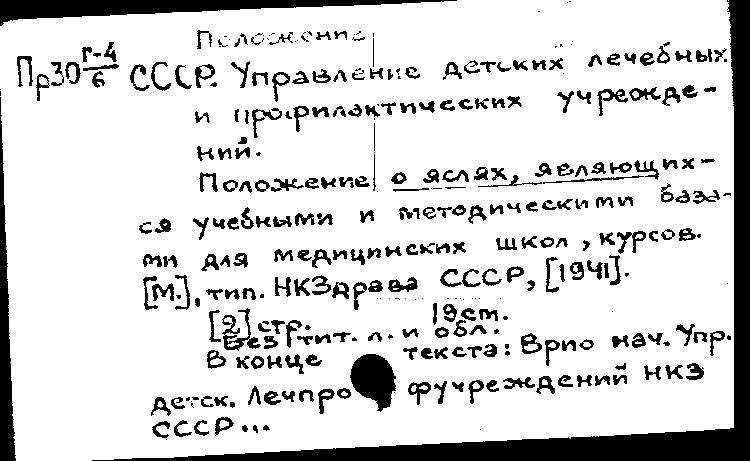 Положение
Пр30 г-4/6 СССР. Управление детских лечебных
и профилактических учрежде-
ний.
Положение о яслях, являющих-
ся учебными и методическими база-
ми для медицинских школ, курсов.
[М.], тип. НКЗдрава СССР, [1941].
[2] стр. 19 cm.
Без тит. л. и обл.
В конце текста: Врио нач. Упр.
детск. Лечпрофучреждений НКЗ
СССР...